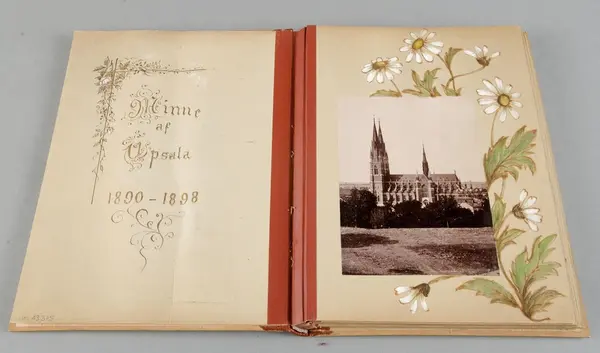 Minne
af
Upsala
1890-1898